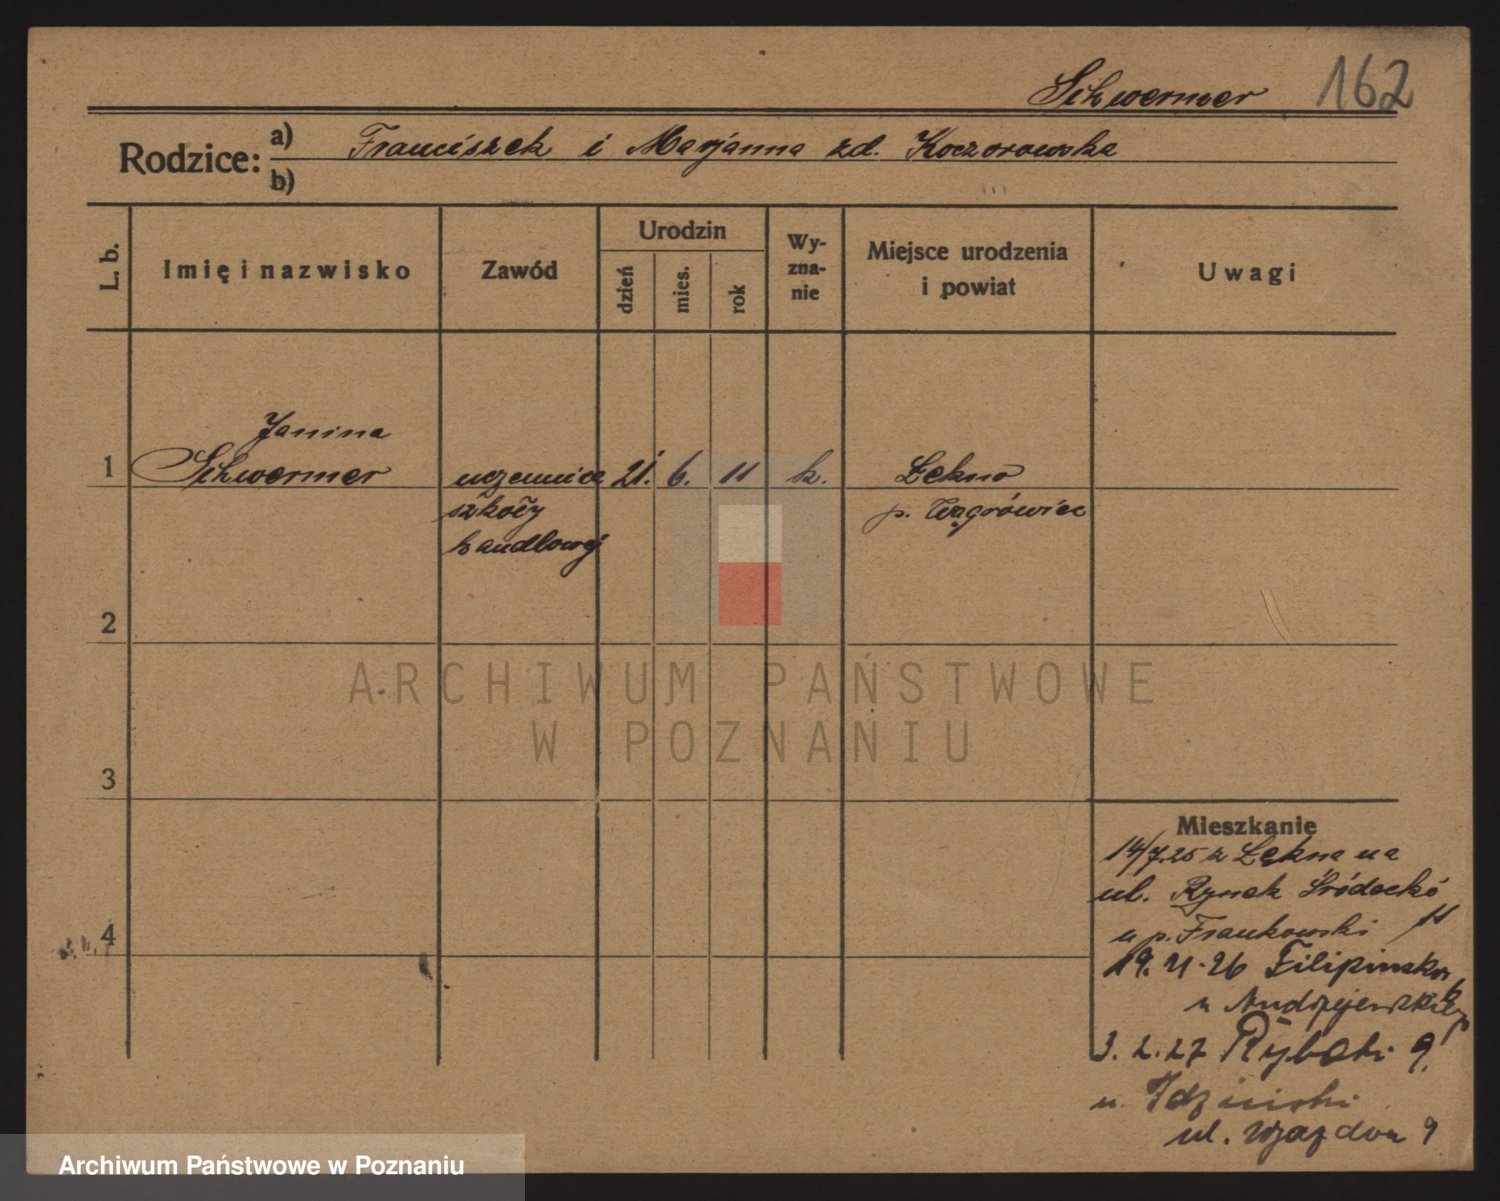 Schwermer 162
Rodzice: a) Franciszek i Marjanna zd. Koczorowska
b)
L. b.
Imię i nazwisko
Zawód
Urodzin
dzień
mies.
rok
Wy-
zna-
nie
Miejsce urodzenia
i powiat
Uwagi
Janina
1 Schwermer uczennica 21. 6. 11 k. Łekno
szkoły p. Wągrówiec
handlowej
2
ARCHIWUM PAŃSTWOWE
W POZNANIU
3
Mieszkanie
14/7.25 z Łekna na
ul. Rynek Śródecki
11
4
u p. Frankowski
19. 11. 26 Filipińska
u Andrzejewskiej
3. 2. 27 Rybaki 9.
u. Idziński
ul. Wjazdowa 9
Archiwum Państwowe w Poznaniu